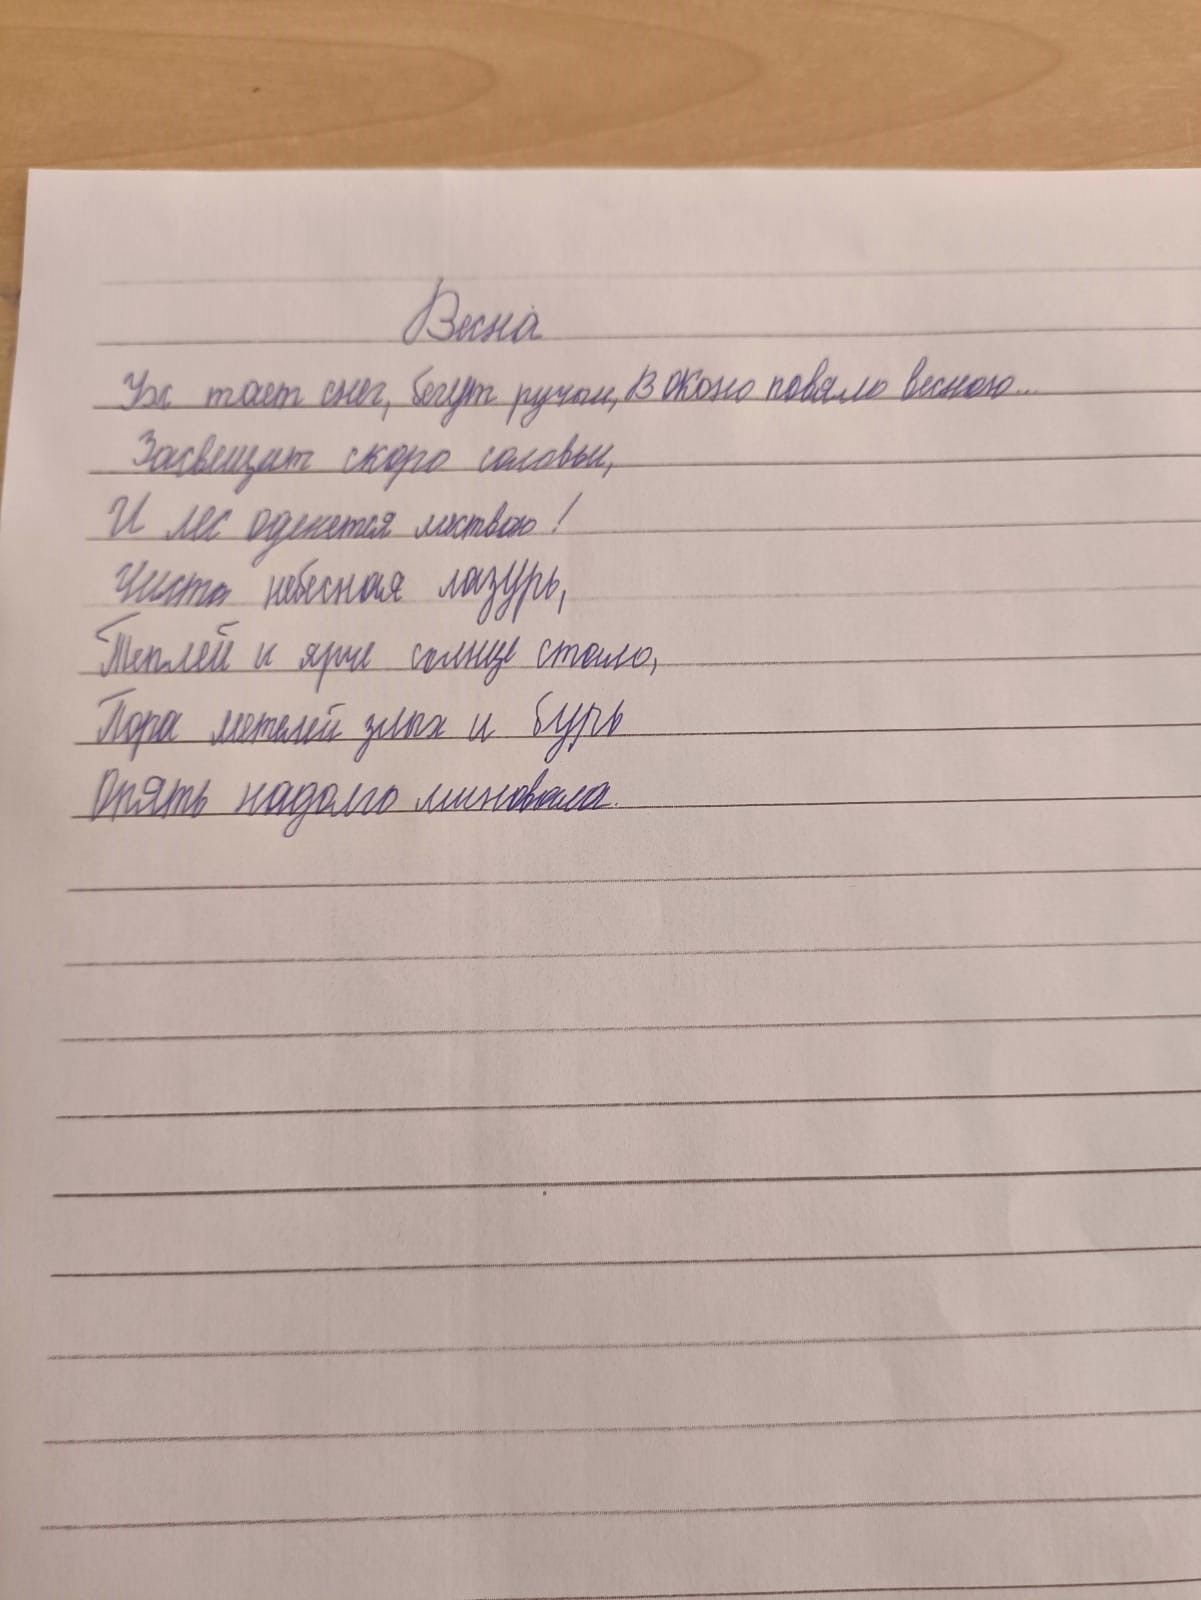 Весна
Уж тает снег, бегут ручьи, В окно повяло весною...
Засвещат скоро соловьи,
И лес оденется листвою!
Чиста небесная лазурь,
Теплей и ярче солнце стало,
Пора метелей злых и бурь
Опять надолго миновала.